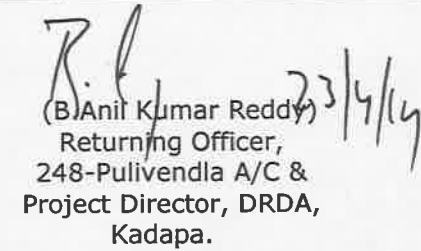 (B.Anil Kumar Reddy) 23/4/14
Returning Officer,
248-Pulivendla A/C &
Project Director, DRDA,
Kadapa.